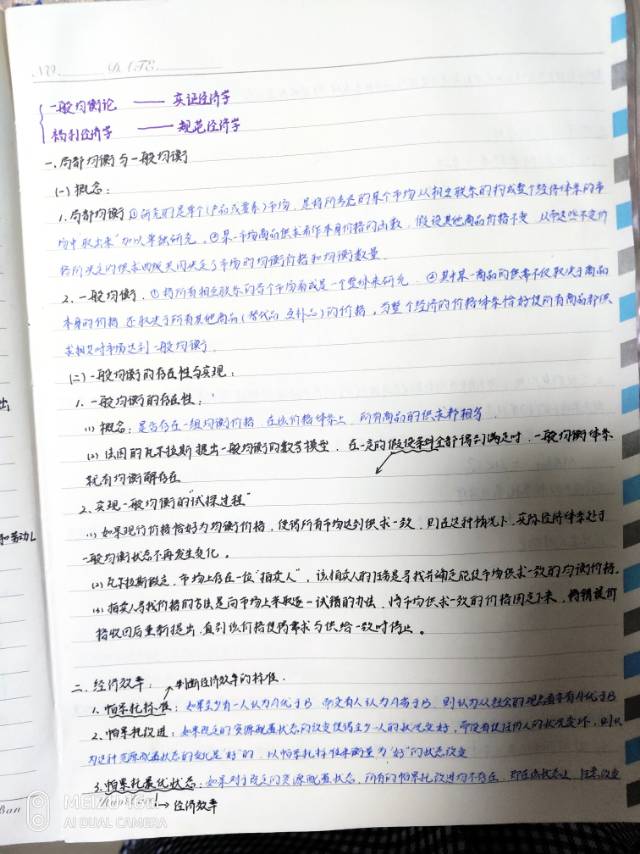 NO. DATE.
一般均衡论 —— 实证经济学
福利经济学 —— 规范经济学
一.局部均衡与一般均衡
(一) 概念:
1.局部均衡 ①研究的是单个(产品或要素)市场,是将所考虑的某个市场从相互联系的构成整个经济体系的市
场中"取出来"加以单独研究。②某一市场商品供求看作本身价格的函数,假设其他商品价格不变
所决定的供求曲线共同决定了市场的均衡价格和均衡数量.
2.一般均衡. ①将所有相互联系的各个市场看成是一个整体来研究. ②其中某一商品的供需不仅取决于商品
本身的价格 还取决于所有其他商品(替代品 互补品)的价格,当整个经济的价格体系恰好使所有商品都供
求相等时市场达到一般均衡.
(二)一般均衡的存在性与实现:
1.一般均衡的存在性:
(1) 概念:是否存在一组均衡价格 在该价格体系上 所有商品的供求都相等
(2) 法国的瓦尔拉斯提出一般均衡的数学模型. 在一定的假设条件全部得到满足时,一般均衡体系
就有均衡解存在
2.实现一般均衡的"试探过程"
(1) 如果现行价格恰好为均衡价格,使得所有市场达到供求一致,则在这种情况下,实际经济体系处于
一般均衡状态不再发生变化。
(2) 瓦尔拉斯假定,市场上存在一位"拍卖人",该拍卖人的任务是寻找并确定能使市场供求一致的均衡价格.
(3) 拍卖人寻找价格的方法是向市场上采取逐一试错的办法,将市场供求一致的价格固定下来,将错误价
格收回后重新提出,直到该价格使得需求与供给一致时停止。
二.经济效率: 判断经济效率的标准.
1.帕累托标准:如果至少有一人认为A优于B 而没有人认为A劣于B,则认为从社会的观点看亦有A优于B
2.帕累托改进:如果既定的资源配置状态的改变使得至少一人的状况变好,而没有使任何人的状况变坏,则认
为这种资源配置状态的变化是"好"的.以帕累托标准来衡量为"好"的状态改变
3.帕累托最优状态:如果对于既定的资源配置状态,所有的帕累托改进均不存在 即在该状态上 任意改变
→ 经济效率
和劳动L
MEIZU 16th
AI DUAL CAMERA